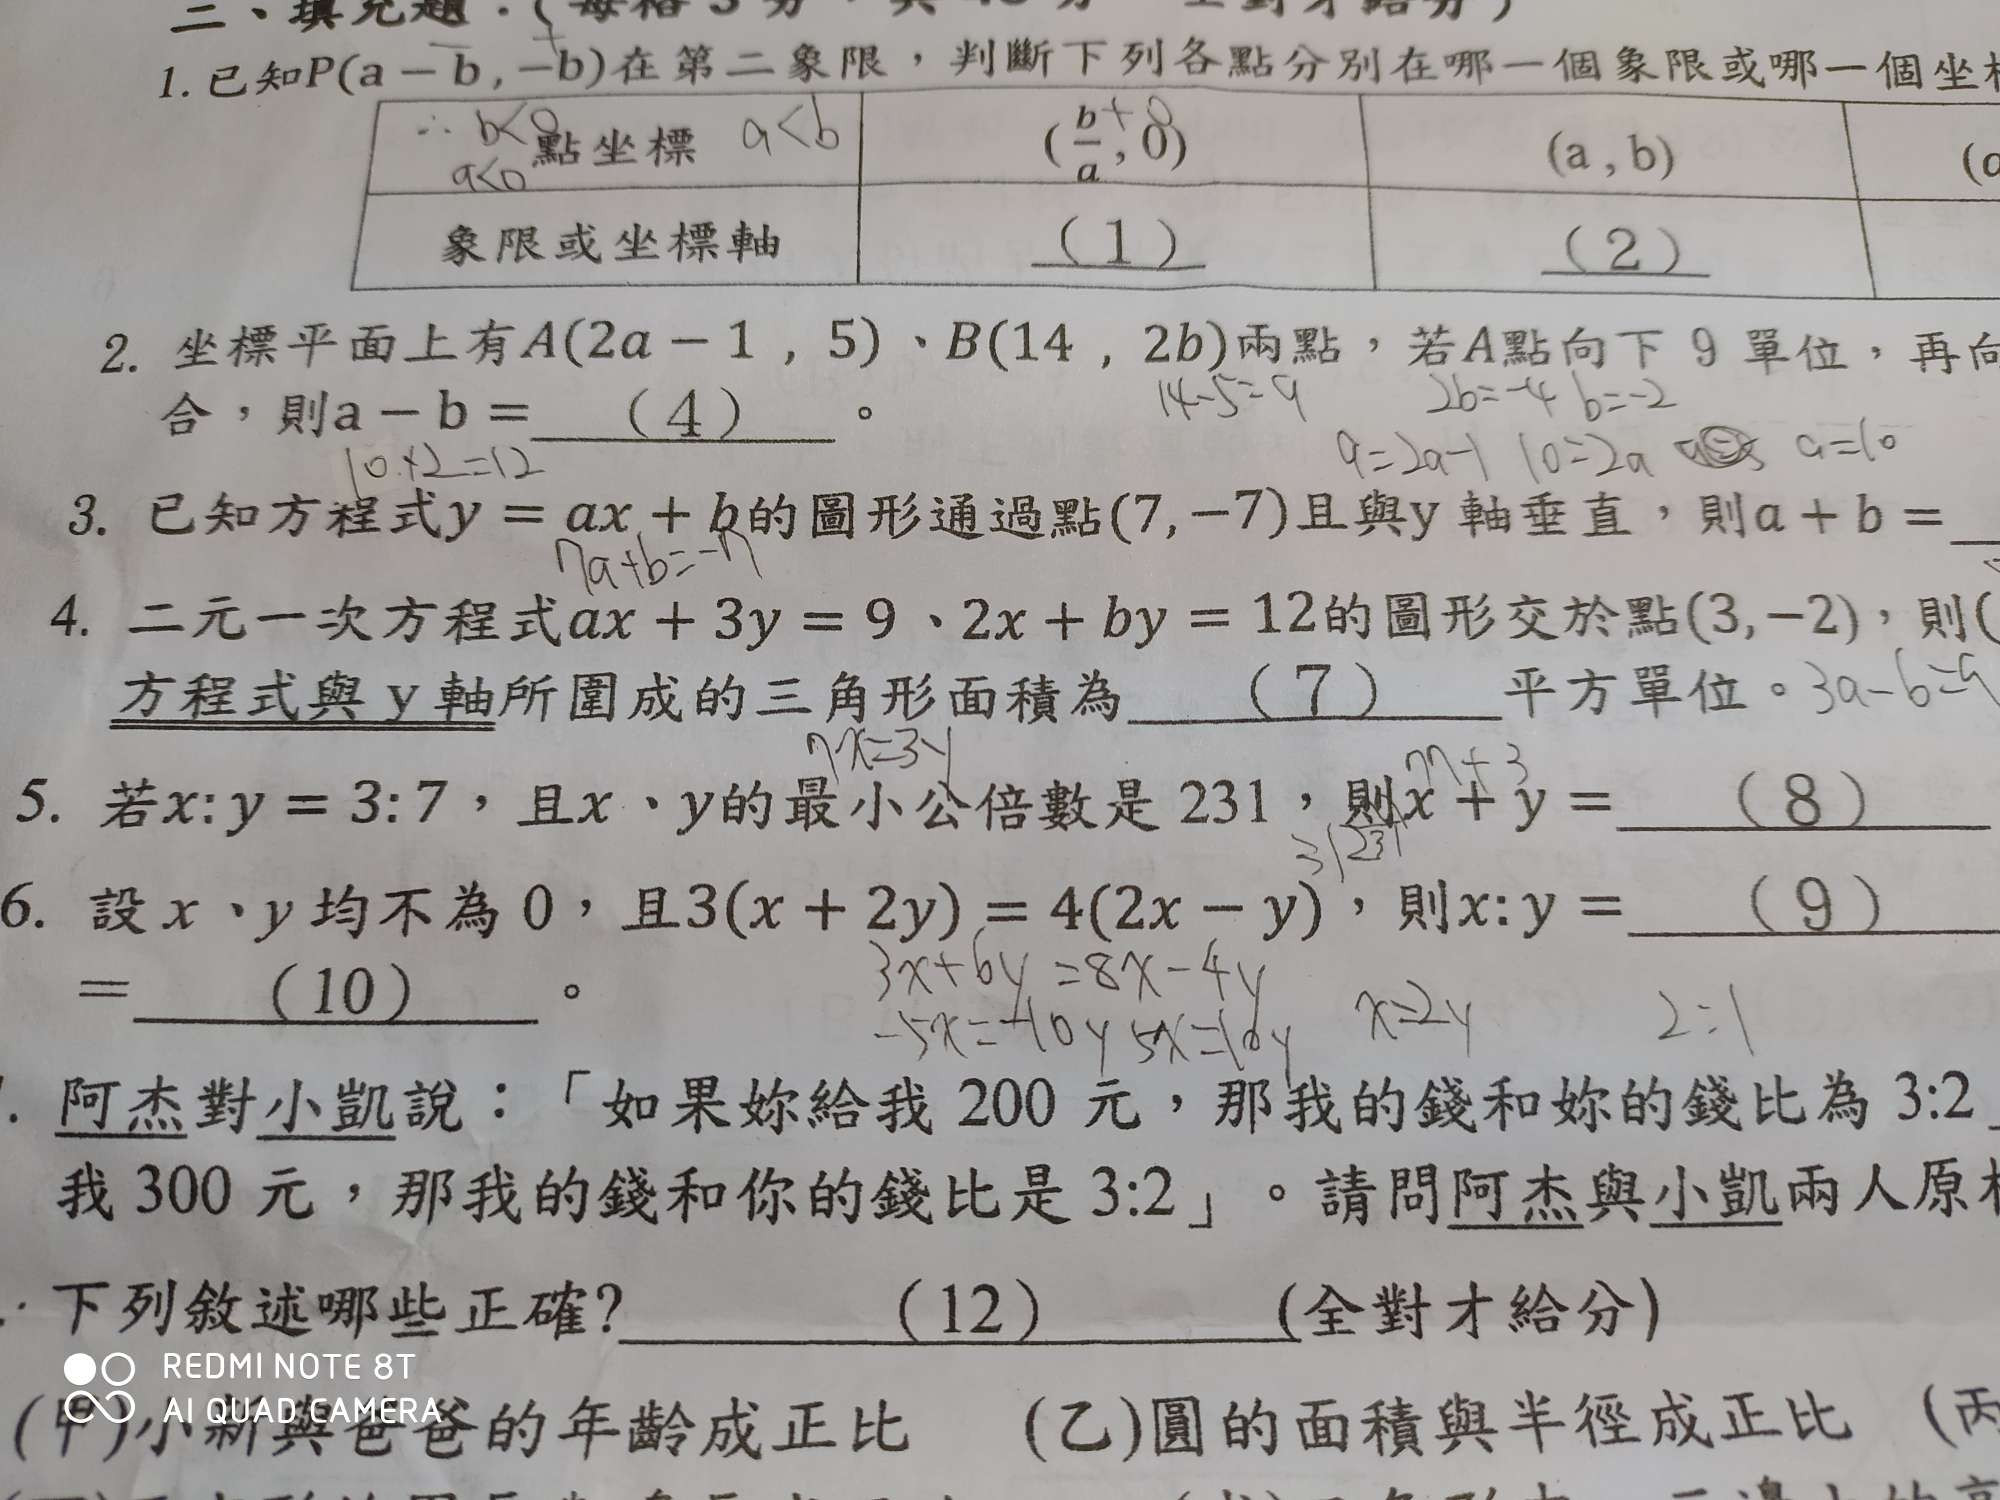 二、填充題：(每格3分，共48分，全對才給分)
1. 已知P(a − b , −b)在第二象限，判斷下列各點分別在哪一個象限或哪一個坐
∴ b<0 點坐標 a<b (b/a , 0) (a , b)
a<0
象限或坐標軸 (1) (2)
2. 坐標平面上有A(2a − 1 , 5)、B(14 , 2b)兩點，若A點向下 9 單位，再向
14-5=9 2b=-4 b=-2
合，則a − b = (4) 。
10+2=12 9=2a-1 10=2a a=10
3. 已知方程式y = ax + b的圖形通過點(7, −7)且與y 軸垂直，則a + b =
7a+b=-7
4. 二元一次方程式ax + 3y = 9、2x + by = 12的圖形交於點(3, −2)，則(
方程式與 y 軸所圍成的三角形面積為 (7) 平方單位。3a-6=9
7x=3y 77+3
5. 若x: y = 3: 7，且x、y的最小公倍數是 231，則x + y = (8)
3|231
6. 設 x、y 均不為 0，且3(x + 2y) = 4(2x − y)，則x: y = (9)
3x+6y=8x-4y
= (10) 。
-5x=-10y 5x=10y x=2y 2:1
阿杰對小凱說：「如果妳給我 200 元，那我的錢和妳的錢比為 3:2」
我 300 元，那我的錢和你的錢比是 3:2」。請問阿杰與小凱兩人原
下列敘述哪些正確? (12) (全對才給分)
REDMI NOTE 8T
AI QUAD CAMERA
(甲)小新與爸爸的年齡成正比 (乙)圓的面積與半徑成正比 (丙